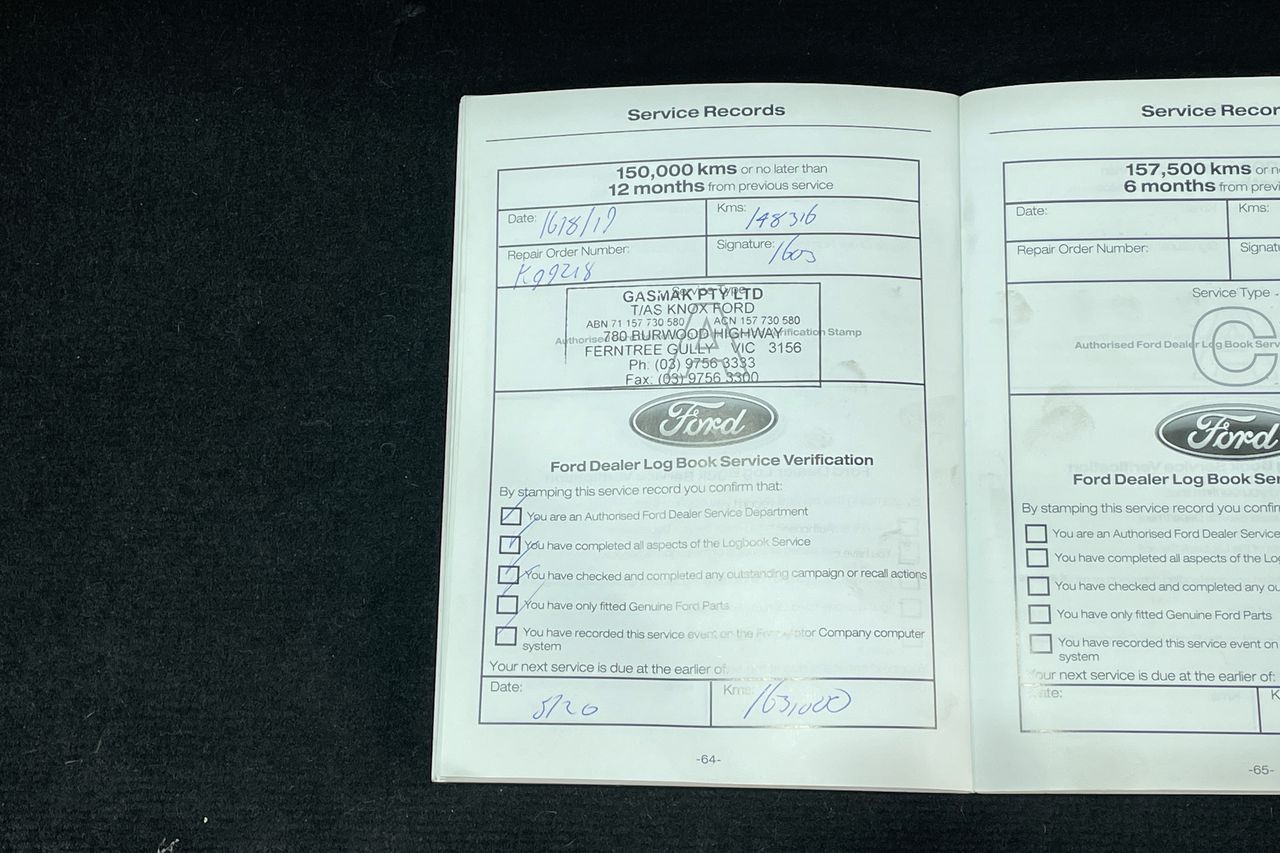 Service Records
150,000 kms or no later than
12 months from previous service
Date: 16/8/19
Kms: 148316
Repair Order Number:
K99218
Signature: 1603
Service Type
GASMAK PTY LTD
T/AS KNOX FORD
ABN 71 157 730 580 ACN 157 730 580
780 BURWOOD HIGHWAY
FERNTREE GULLY VIC 3156
Ph. (03) 9756 3333
Fax: (03) 9756 3300
A
Authorised Verification Stamp
Ford
Ford Dealer Log Book Service Verification
By stamping this service record you confirm that:
You are an Authorised Ford Dealer Service Department
You have completed all aspects of the Logbook Service
You have checked and completed any outstanding campaign or recall actions
You have only fitted Genuine Ford Parts
You have recorded this service event on the Ford Motor Company computer
system
Your next service is due at the earlier of:
Date:
Kms: 163,000
-64-
Service Recor
157,500 kms or n
6 months from previ
Date:
Kms:
Repair Order Number:
Signat
Service Type -
C
Authorised Ford Dealer Log Book Serv
Ford
Ford Dealer Log Book Ser
By stamping this service record you confir
You are an Authorised Ford Dealer Service
You have completed all aspects of the Lo
You have checked and completed any ou
You have only fitted Genuine Ford Parts
You have recorded this service event on
system
Your next service is due at the earlier of:
Date:
K
-65-